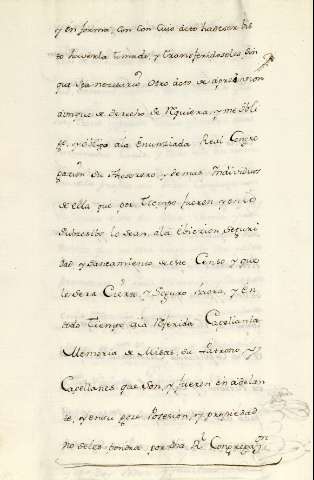 y en forma, con con cuio acto ha de ser vis
to haverla tomado, y transferidoseles, sin
que sea necesario otro acto de aprension
aunque de derecho se requiera, y me obli
go, y obligo a la enunziada Real Congre
gacion su Thesorero, y demas Individuos
de ella que por tiempo fueren y en lo
subcesibo lo sean, a la Ebiccion seguri
dad y saneamiento de este Censo y que
le sera Cierto, y Seguro haora, y en
todo tiempo a la Referida Capellania
Memoria de Misas, su Patrono, y
Capellanes que son, y fueren en adelan
te, y en su posesion, y propiedad
no se les pondra por dha Rl. Congregazn.